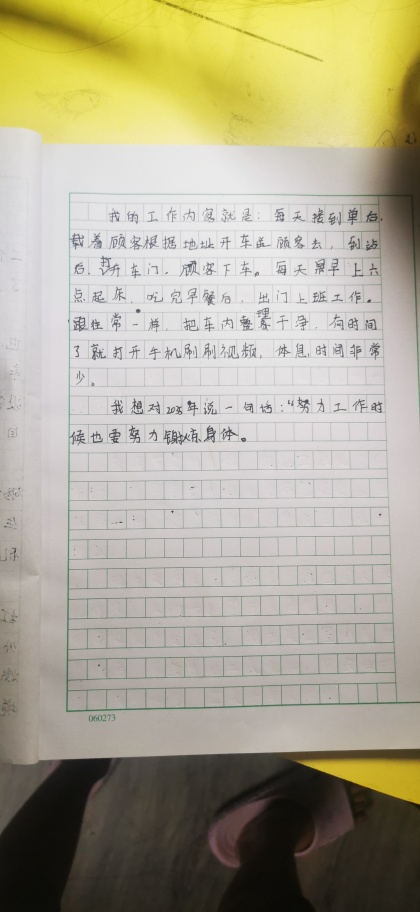 我的工作内容就是：每天接到单后，
载着顾客根据地址开车送顾客去，到站
后，打开车门，顾客下车。每天早上六
点起床，吃完早餐后，出门上班工作。
跟往常一样，把车内整理干净，有时间
了就打开手机刷刷视频，休息时间非常
少。
我想对2035年说一句话：“努力工作时
候也要努力锻炼身体。
060273